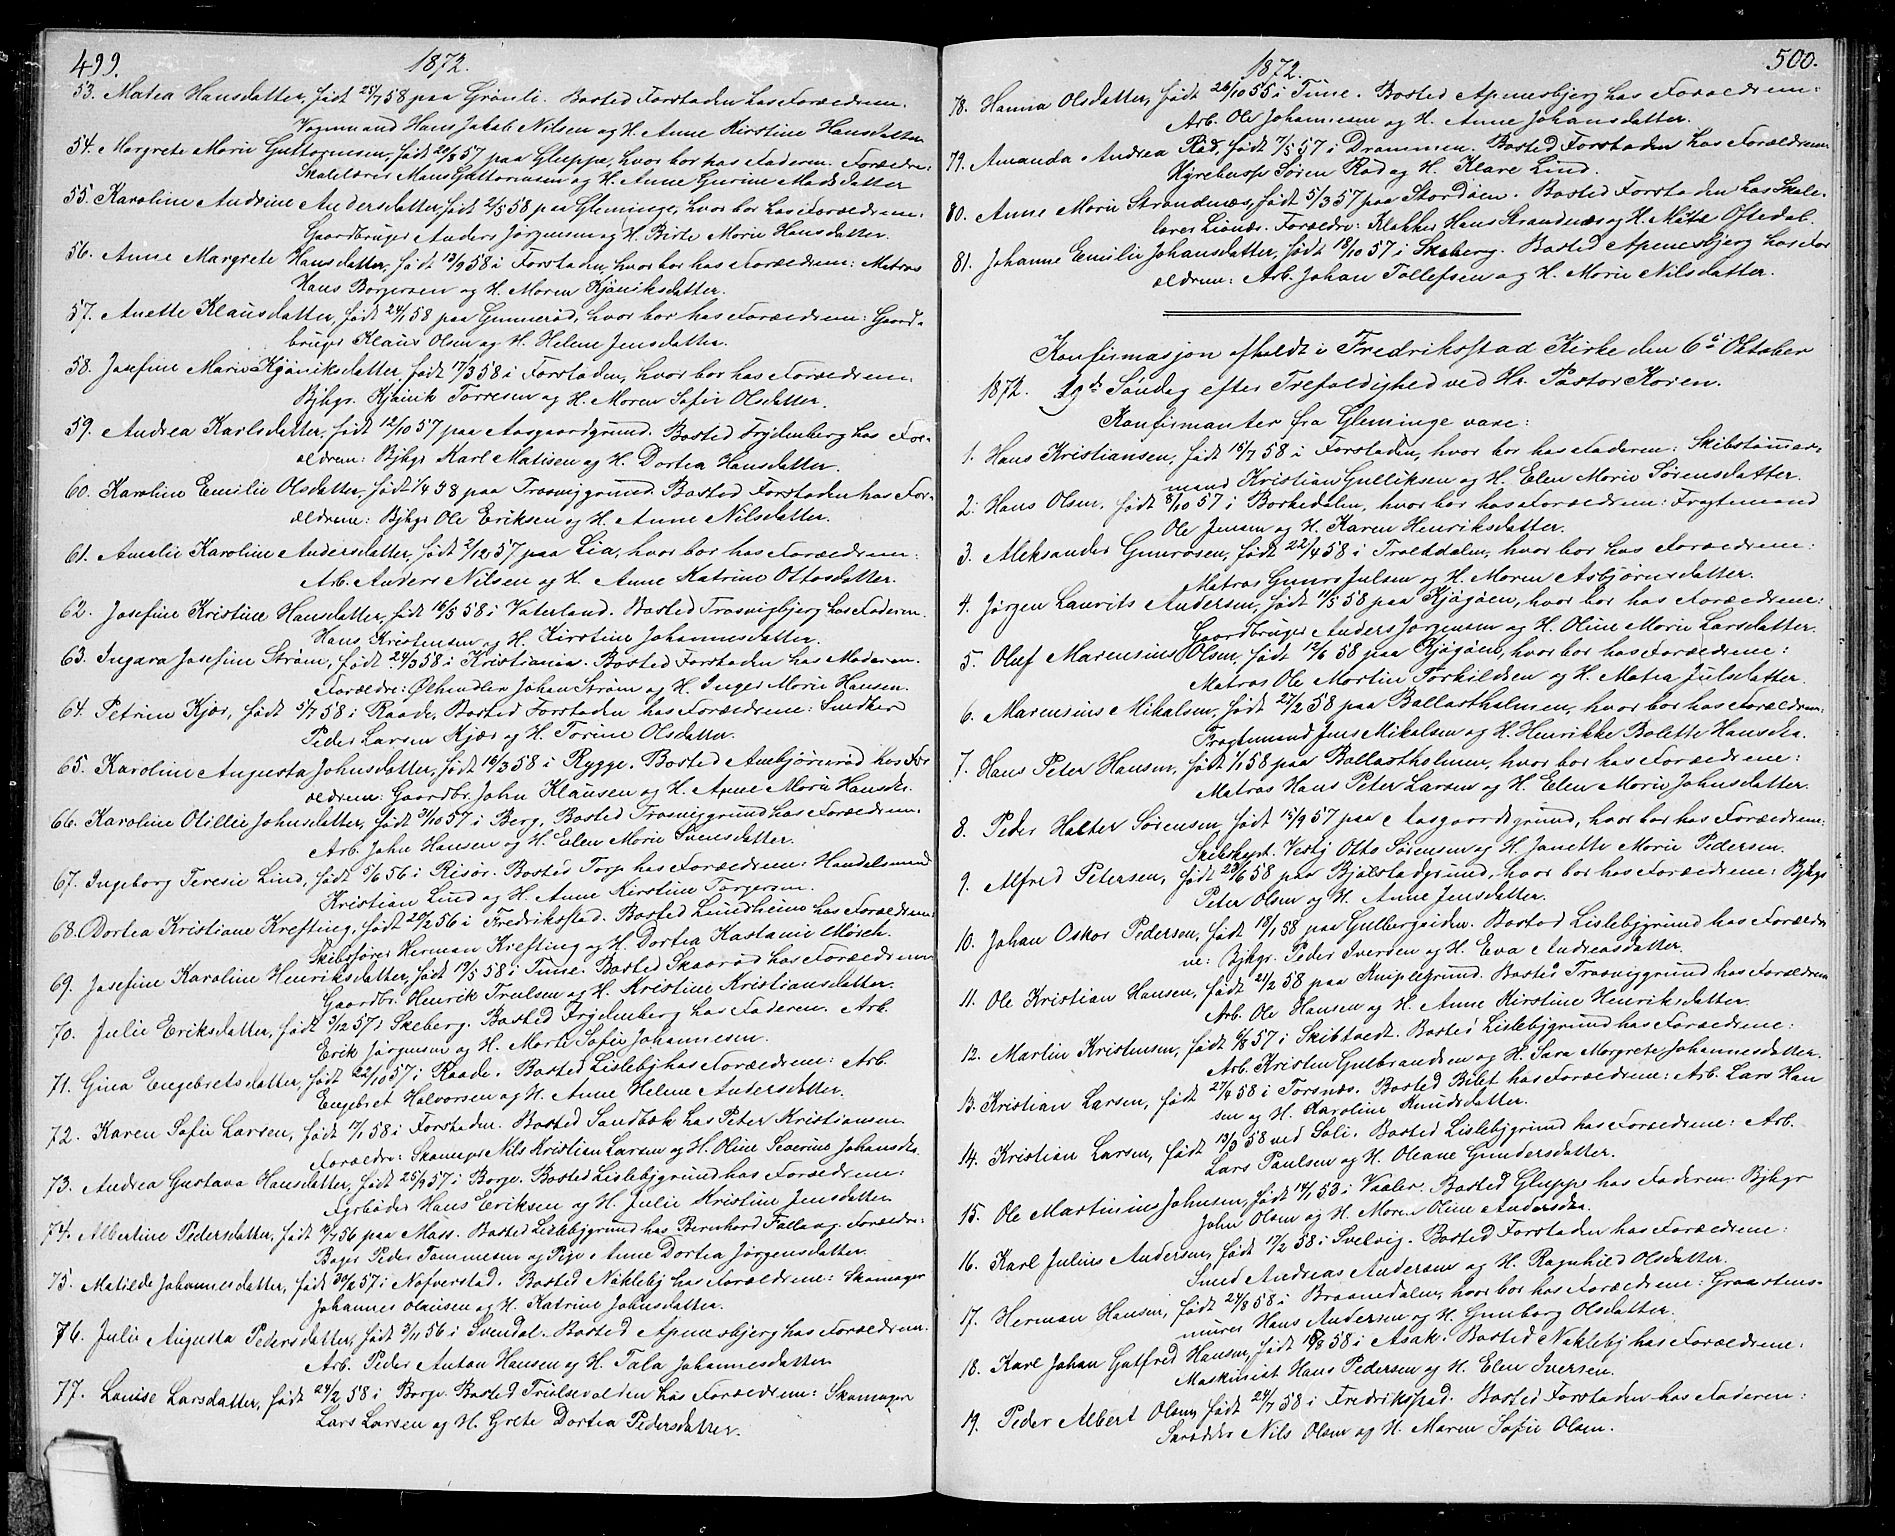 499.
1872.
53. Matea Hansdatter, født 25/7 58 paa Grönli. Bosted Forstaden hos Forældrene.
Vognmand Hans Jakob Nilsen og H. Anne Kirstine Hansdatter
54. Margrete Marie Guttormsen, født 20/3 57 paa Gluppe, hvor bor hos Faderen. Forældre:
Skolelærer Hans Guttormsen og H. Anne Gurine Madsdatter
55. Karoline Andrine Andersdatter, født 2/5 58 paa Gleminge, hvor bor hos Forældrene:
Gaardbruger Anders Jörgensen og H. Birte Marie Hansdatter.
56. Anne Margrete Hansdatter, født 13/9 58 i Forstaden hvor bor hos Forældrene: Matros
Hans Borgersen og H. Maren Kjöniksdatter.
57. Anette Klausdatter, født 24/1 58 paa Gunnerød, hvor bor hos Forældrene: Gaard-
bruger Klaus Olsen og H. Helene Jensdatter.
58. Josefine Marie Kjöniksdatter, født 17/3 58 i Forstaden, hvor bor hos Forældrene:
Bjhgr. Kjönik Torresen og H. Maren Sofie Olsdatter.
59. Andrea Karlsdatter, født 12/10 57 paa Aasgaardgrund. Bosted Frydenberg hos For-
ældrene: Bjhgr Karl Matisen og H. Dortea Hansdatter.
60. Karoline Emilie Olsdatter, født 1/4 58 paa Trosviggrund. Bosted Forstaden hos For-
ældrene: Bjhgr Ole Eriksen og H. Anne Nilsdatter.
61. Amalie Karoline Andersdatter, født 2/12 57 paa Lia, hvor bor hos Forældrene:
Arb. Anders Nilsen og H. Anne Katrine Ottosdatter.
62. Josefine Kristine Hansdatter, født 16/5 58 i Vaterland. Bosted Trosvigbjerg hos Faderen.
Hans Kristensen og H. Kirstine Johannesdatter.
63. Ingara Josefine Strøm, født 24/3 58 i Kristiania. Bosted Forstaden hos Moderen.
Forældre: Ølhandler Johan Strøm og H. Inger Marie Hansen.
64. Petrine Kjær, født 5/7 58 i Raade, Bosted Forstaden hos Forældrene: Snedker
Peder Larsen Kjær og H. Torine Olsdatter.
65. Karoline Augusta Johnsdatter, født 16/3 58 i Rygge. Bosted Ambjörnrød hos For
ældrene: Gaardbr. John Klausen og H. Anne Marie Hansdr.
66. Karoline Otillie Johnsdatter, født 31/10 57 i Berg, Bosted Trosviggrund hos Forældrene.
Arb. John Hansen og H. Elen Marie Svensdatter.
67. Ingeborg Teresie Lind, født 5/6 56 i Risör. Bosted Torp hos Forældrene: Handelsmand
Kristian Lind og H. Anne Kirstine Torgersen.
68. Dortea Kristiane Krefting, født 20/2 56 i Fredrikstad. Bosted Lundheim hos Forældrene:
Skibsfører Herman Krefting og H. Dortea Kastanie Mørch.
69. Josefine Karoline Henriksdatter, født 19/5 58 i Tune. Bosted Skaarød hos Forældrene
Gaardbr. Henrik Trulsen og H. Kristine Kristiansdatter.
70. Julie Eriksdatter, født 3/12 57 i Skeberg. Bosted Frydenberg hos Faderen. Arb.
Erik Jørgensen og H. Marte Sofie Johannesen.
71. Gina Engebretsdatter, født 22/10 57 i Raade. Bosted Lisleby hos Forældrene: Arb
Engebret Halvorsen og H. Anne Helene Andersdatter.
72. Karen Sofie Larsen, født 17/1 58 i Forstaden. Bosted Sandbæk hos Peter Kristiansen
Forældre: Skomagr Nils Kristian Larsen og H. Oline Severine Johansdr.
73. Andrea Gustava Hansdatter, født 25/9 57 i Borge. Bosted Lislebygrund hos Forældrene:
Hans Eriksen og H. Julie Kristine Jensdatter
74. Albertine Pedersdatter, født 19/7 56 paa Moss. Bosted Lislebygrund hos Bernhard Falla og. Forældre:
Bager Peder Tommesen og Pige Anne Dortea Jørgensdatter.
75. Matilde Johannesdatter, født 30/2 57 i Nafverstad. Bosted Nokleby hos Forældrene: Skomager
Johannes Olausen og H. Katrine Johnsdatter.
76. Julie Augusta Pedersdatter, født 3/11 56 i Svendal. Bosted Apenesbjerg hos Forældrene.
Arb. Peder Anton Hansen og H. Tala Johannesdatter
77. Lovise Larsdatter, født 24/2 58 i Borge. Bosted Trulsevolden hos Forældrene: Skomager
Lars Larsen og H. Grete Dortea Pedersdatter.
1872.
500.
78. Hanna Olsdatter, født 26/10 55 i Tune. Bosted Apenesbjerg hos Forældrene:
Arb. Ole Johannesen og H. Anne Johansdatter.
79. Amanda Andrea Rød, født 7/5 57 i Drammen. Bosted Forstaden hos Forældrene
Hyrekusk Søren Rød og H. Klare Lind.
80. Anne Marie Strandnæs, født 5/3 57 paa Stordøen. Bosted Forstaden hos Skole-
lærer Lionæs. Forældre: Klokker Hans Strandnæs og H. Mæta Oftedal.
81. Johanne Emilie Johansdatter, født 18/10 57 i Skeberg. Bosted Apenesbjerg hos For
ældrene: Arb. Johan Tollefsen og H. Marie Nilsdatter.
Konfirmasjon afholdt i Fredrikstad Kirke den 6te Oktober
1872. 19de Søndag efter Trefoldighed ved Hr. Pastor Koren.
Konfirmanter fra Gleminge vare:
1. Hans Kristiansen, født 15/7 58 i Forstaden, hvor bor hos Faderen: Skibstømmer-
mand Kristian Gulliksen og H. Elen Marie Sørensdatter.
2. Hans Olsen, født 8/10 57 i Borkedalen, hvor bor hos Forældrene: Fragtemand
Ole Jensen og H. Karen Henriksdatter.
3. Aleksander Gunrosen, født 22/4 58 i Tralddalen, hvor bor hos Forældrene:
Matros Gunro Julsen og H. Maren Asbjørnsdatter.
4. Jørgen Laurits Andersen, født 11/5 58 paa Kjøgøen, hvor bor hos Forældrene:
Gaardbruger Anders Jørgensen og H. Oline Marie Larsdatter.
5. Oluf Marensius Olsen, født 12/6 58 paa Kjøgøen, hvor bor hos Forældrene:
Matros Ole Martin Torkildsen og H. Matea Julsdatter.
6. Marensius Mikalsen, født 27/2 58 paa Ballastholmen, hvor bor hos Forældrene:
Fragtemand Jens Mikalsen og H. Henrikke Bolette Hansdtr.
7. Hans Peter Hansen, født 1/1 58 paa Ballastholmen, hvor bor hos Forældrene:
Matros Hans Peter Larsen og H. Elen Marie Johnsdatter.
8. Peder Halter Sørensen, født 15/9 57 paa Aasgaardsgrund, hvor bor hos Forældrene:
Skibskapt. Vestj Otto Sørensen og H. Janette Marie Pedersen.
9. Alfred Petersen, født 29/6 58 paa Bjølstadgrund, hvor bor hos Forældrene: Bjhgr
Peter Olsen og H. Anne Jensdatter.
10. Johan Oskar Pedersen, født 18/1 58 paa Gulbergsiden. Bosted Lislebygrund hos Forældre
ne: Bjhgr. Peder Iversen og H. Eva Andreasdatter.
11. Ole Kristian Hansen, født 21/2 58 paa Kniplegrund. Bosted Trosviggrund hos Forældrene
Arb. Ole Hansen og H. Anne Kirstine Henriksdatter.
12. Martin Kristensen, født 6/8 57 i Skibtvedt. Bosted Lislebygrund hos Forældrene:
Arb. Kristen Gulbrandsen og H. Sara Margrete Johannesdatter.
13. Kristian Larsen, født 27/4 58 i Torsnæs. Bosted Bilet hos Forældrene: Arb. Lars Han
sen og H. Karoline Knudsdatter.
14. Kristian Larsen, født 13/3 58 ved Soli. Bosted Lislebygrund hos Forældrene: Arb.
Lars Paulsen og H. Oleane Gundersdatter.
15. Ole Martinius Johnsen, født 14/1 53 i Vaaler. Bosted Gluppe hos Faderen: Bjhgr
John Olsen og H. Maren Oline Andersdtr.
16. Karl Julius Andersen, født 17/2 58 i Svelvig. Bosted Forstaden hos Forældrene:
Smed Andreas Andersen og H. Ragnhild Olsdatter.
17. Herman Hansen, født 24/8 58 i Braanedalen, hvor bor hos Forældrene: Graastens-
murer Hans Andersen og H. Gunborg Olsdatter.
18. Karl Johan Gotfred Hansen, født 16/8 58 i Asak. Bosted Nokleby hos Forældrene:
Maskinist Hans Pedersen og H. Elen Iversen.
19. Peder Albert Olsen, født 24/7 58 i Fredrikstad. Bosted Forstaden hos Faderen:
Nils Olsen og H. Maren Sofie Olsen.